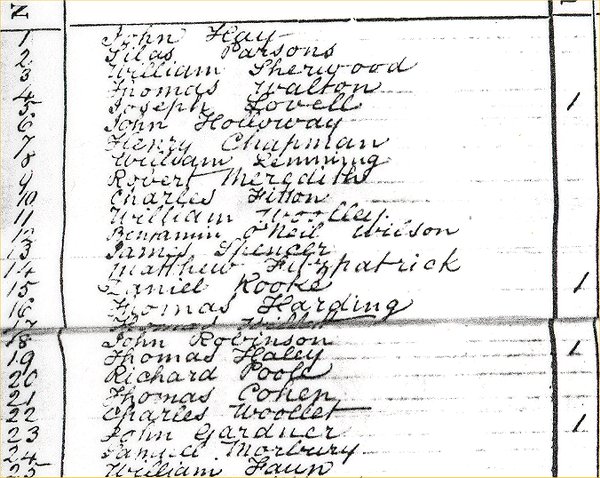 N
1 John Hay
2 Silas Parsons
3 William Sherwood
4 Thomas Walton
5 Joseph Lovell 1
6 John Holloway
7 Henry Chapman
8 William Lemming
9 Robert Meredith
10 Charles Fitton
11 William Woolley
12 Benjamin O'Neil Wilson
13 James Spencer
14 Matthew Fitzpatrick
15 Daniel Rooke 1
16 Thomas Harding
17 Thomas
18 John Robinson
19 Thomas Haley 1
20 Richard Poole
21 Thomas Cohen
22 Charles Woollet
23 John Gardner 1
24 Samuel Morbury
25 William Faun